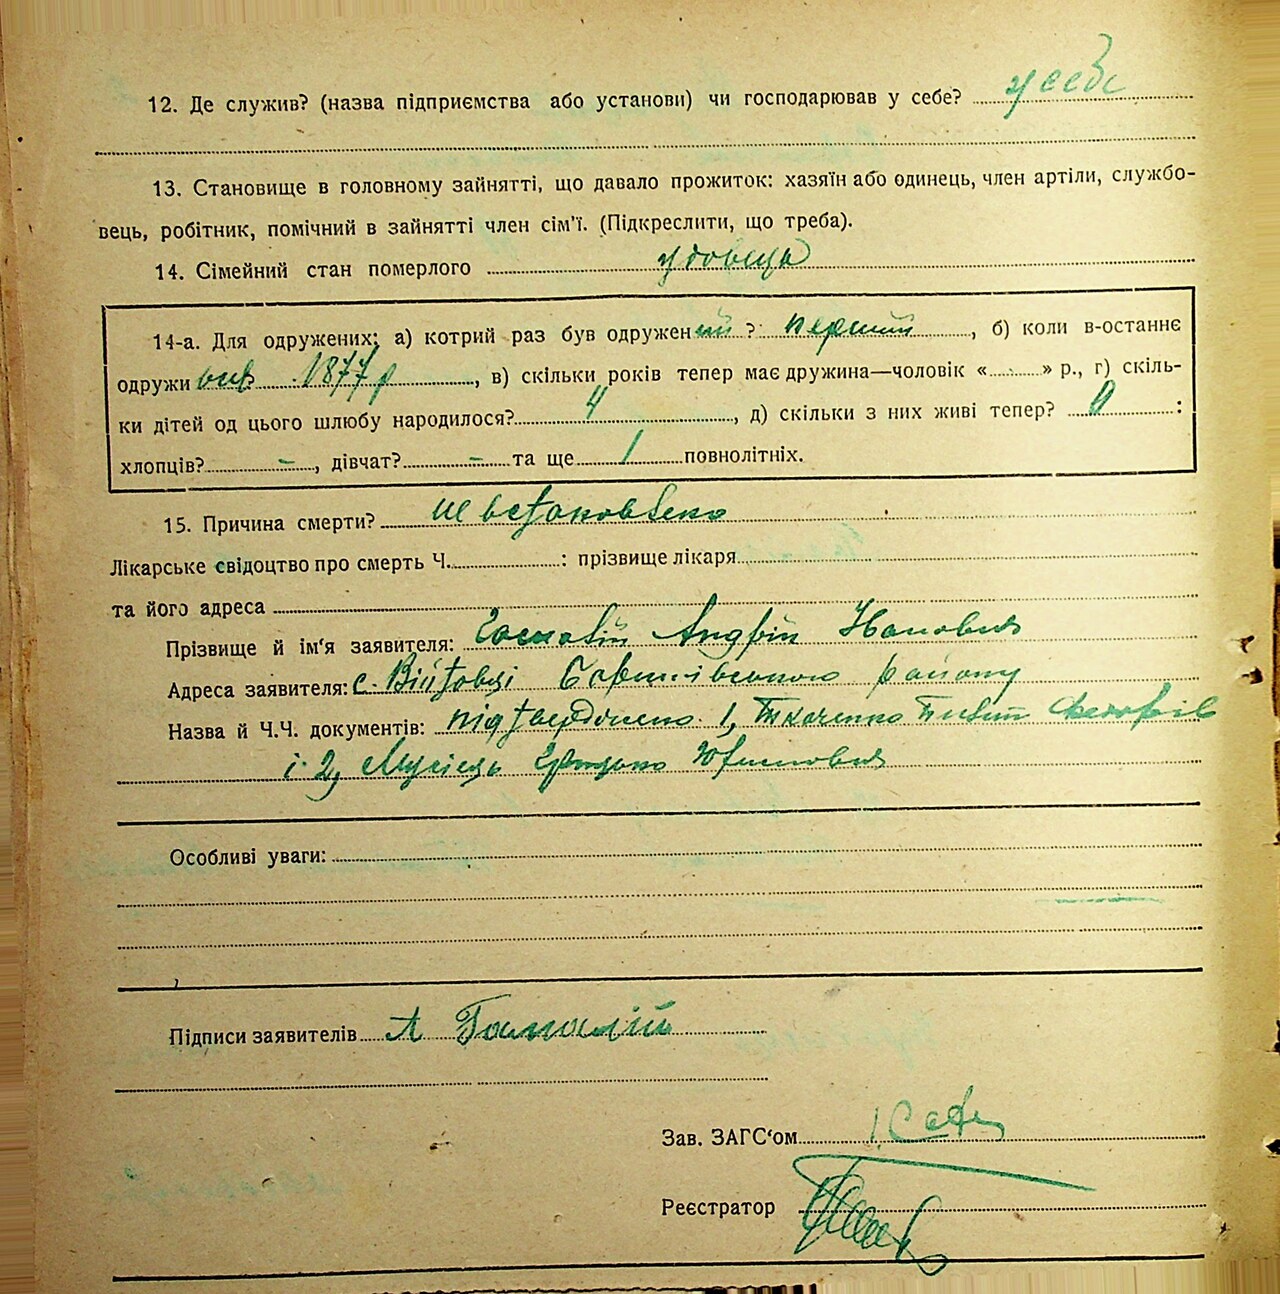 12. Де служив? (назва підприємства або установи) чи господарював у себе? у себе
13. Становище в головному зайнятті, що давало прожиток: хазяїн або одинець, член артіли, службо-
вець, робітник, помічний в зайнятті член сім'ї. (Підкреслити, що треба).
14. Сімейний стан померлого удовець
14-а. Для одружених: а) котрий раз був одружений ? перший, б) коли в-останнє
одружився 1877 р, в) скільки років тепер має дружина—чоловік « » р., г) скіль-
ки дітей од цього шлюбу народилося? 4, д) скільки з них живі тепер? 0 :
хлопців? –, дівчат? – та ще 1 повнолітніх.
15. Причина смерти? не встановлено
Лікарське свідоцтво про смерть Ч. : прізвище лікаря
та його адреса
Прізвище й ім'я заявителя: Андрій
Адреса заявителя: с. Війтовці району
Назва й Ч.Ч. документів: підтверджено 1, Ткаченко
і 2, Мусієць
Особливі уваги:
Підписи заявителів А
Зав. ЗАГС'ом
Реєстратор